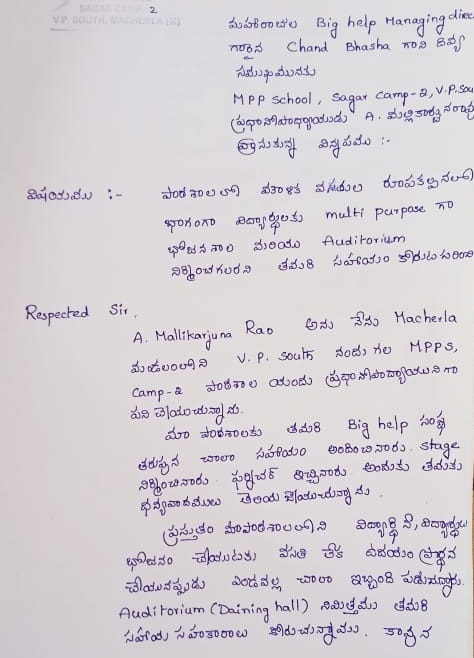 SAGAR CAMP - 2
V.P. SOUTH, MACHERLA (M)
మహారాజుల Big help Managing direc
గార్కైన Chand Bhasha గారి దివ్య
సముఖమునకు
MPP School, Sagar Camp-2, V.P.Sou
ప్రధానోపాధ్యాయుడు A. మల్లికార్జునరావు
వ్రాసుకున్న విన్నపము :-
విషయము :- పాఠశాలలో వసతుల రూపకల్పనలో
భాగంగా విద్యార్థులకు multi purpose గా
భోజనశాల మరియు Auditorium
నిర్మించగలరని తమరి సహాయం కోరుట గురించి
Respected Sir,
A. Mallikarjuna Rao అను నేను Macherla
మండలంలోని V.P. South నందు గల MPPS,
Camp-2 పాఠశాల యందు ప్రధానోపాధ్యాయునిగా
పని చేయుచున్నాను.
మా పాఠశాలకు తమరి Big help సంస్థ
తరుపున చాలా సహాయం అందించినారు. Stage
నిర్మించినారు. ఫర్నిచర్ ఇచ్చినారు. అందుకు తమకు
ధన్యవాదములు తెలియ జేయుచున్నాను.
ప్రస్తుతం మాపాఠశాలలోని విద్యార్థినీ, విద్యార్థులు
భోజనం చేయుటకు వసతి లేక ఉదయం ప్రార్థన
చేయునప్పుడు ఎండవల్ల చాలా ఇబ్బంది పడుచున్నారు.
Auditorium (Daining hall) నిమిత్తము తమరి
సహాయ సహకారాలు కోరుచున్నాము. కావున